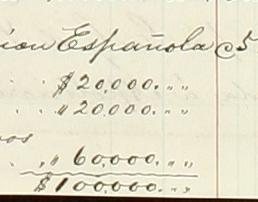 ion Española c5
$20,000. „ „
„ 20,000. „ „
os
„ 60,000. „ „
$100,000. „ „